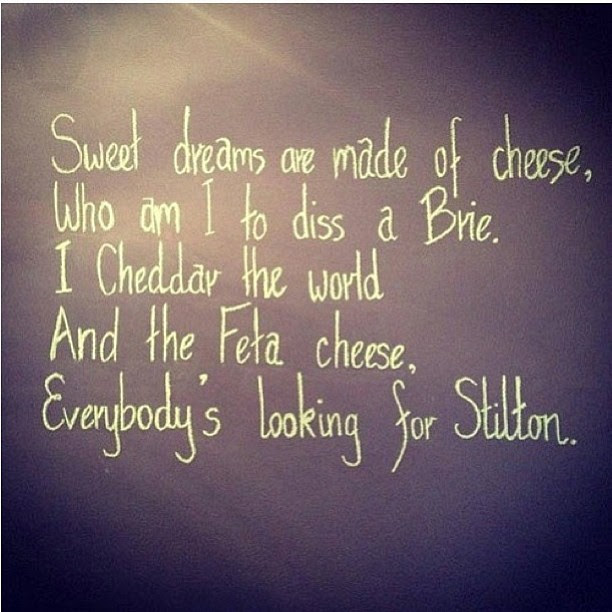 Sweet dreams are made of cheese,
Who am I to diss a Brie.
I Cheddar the world
And the Feta cheese,
Everybody's looking for Stilton.